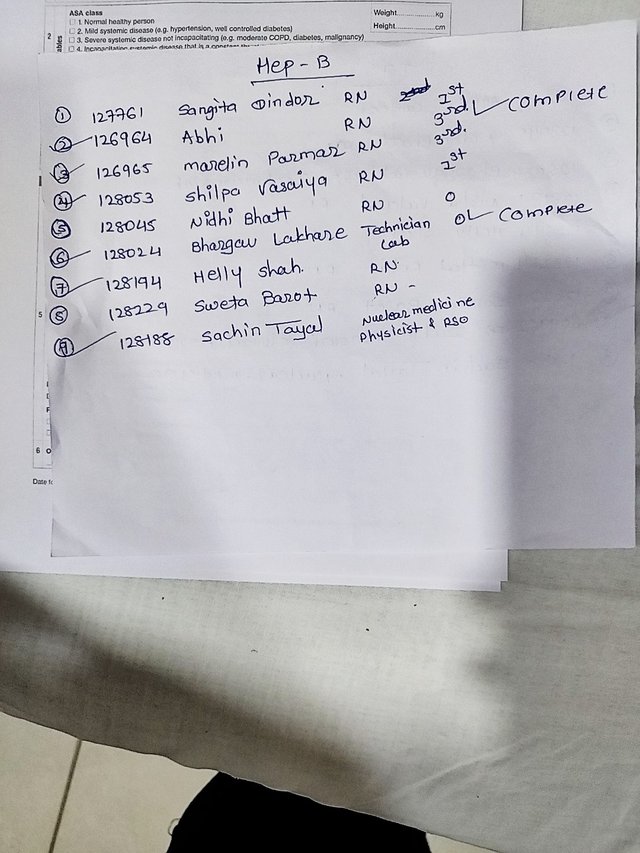 ASA class
1. Normal healthy person
2. Mild systemic disease (e.g. hypertension, well controlled diabetes)
3. Severe systemic disease not incapacitating (e.g. moderate COPD, diabetes, malignancy)
4. Incapacitating systemic disease that is a constant
Weight.................kg
Height.................cm
2
Hep - B
1 127761 Sangita Dindor RN 1st
2 126964 Abhi RN 3rd. complete
3 126965 marelin Parmar RN 3rd.
4 128053 shilpa Vasaiya RN 1st
5 128045 Nidhi Bhatt RN 0
6 128024 Bhargav Lakhare Technician Lab 0 complete
7 128194 Helly shah. RN.
8 128229 Sweta Barot RN -
9 128188 Sachin Tayal Nuclear medicine Physicist & RSO
5
6